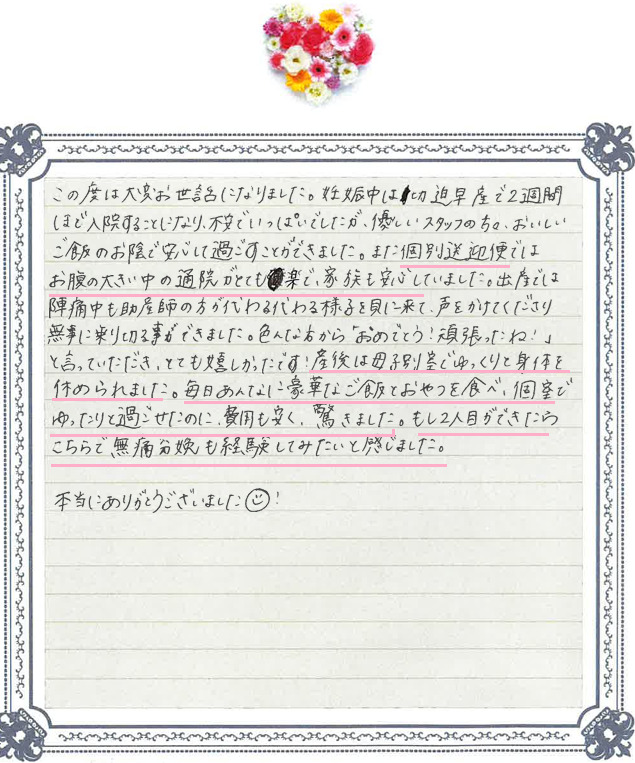 この度は大変お世話になりました。妊娠中は切迫早産で2週間
ほど入院することになり、不安でいっぱいでしたが、優しいスタッフの方々、おいしい
ご飯のお陰で安心して過ごすことができました。また個別送迎便では
お腹の大きい中の通院がとても楽で、家族も安心していました。出産では
陣痛中も助産師の方が代わる代わる様子を見に来て、声をかけてくださり
無事に乗り切る事ができました。色んな方から「おめでとう！頑張ったね！」
と言っていただき、とても嬉しかったです！産後は母子別室でゆっくりと身体を
休められました。毎日あんなに豪華なご飯とおやつを食べ、個室で
ゆったりと過ごせたのに、費用も安く、驚きました。もし2人目ができたら
こちらで無痛分娩も経験してみたいと感じました。
本当にありがとうございました☺！